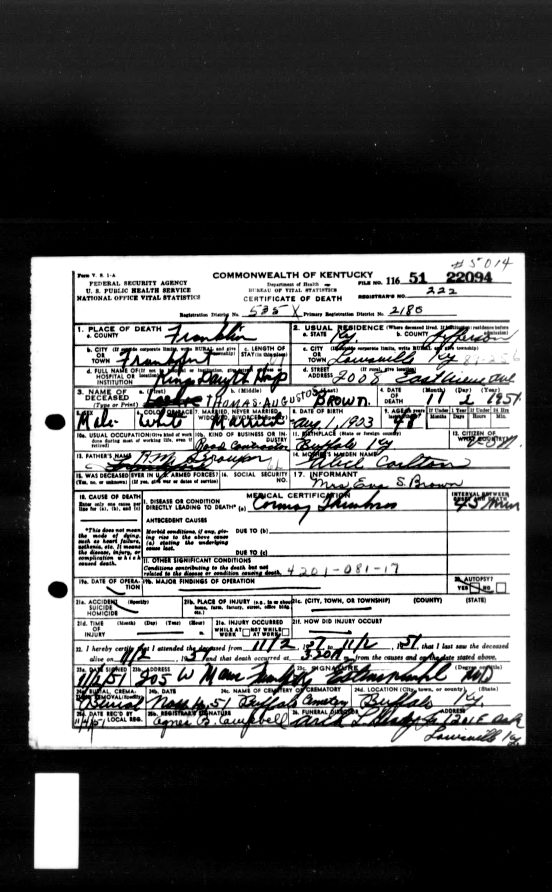 #5014
Form V. S. 1-A
COMMONWEALTH OF KENTUCKY
FEDERAL SECURITY AGENCY
Department of Health
FILE NO. 116 51 22094
U. S. PUBLIC HEALTH SERVICE
BUREAU OF VITAL STATISTICS
NATIONAL OFFICE VITAL STATISTICS
CERTIFICATE OF DEATH
REGISTRAR'S NO. 222
Registration District No. 535 X Primary Registration District No. 2180
1. PLACE OF DEATH
a. COUNTY Franklin
2. USUAL RESIDENCE (Where deceased lived. If institution: residence before admission)
a. STATE Ky b. COUNTY Jefferson
b. CITY OR TOWN Frankfort
c. LENGTH OF STAY (in this place)
c. CITY OR TOWN Louisville Ky
d. FULL NAME OF HOSPITAL OR INSTITUTION Kings Daught Hosp
d. STREET ADDRESS 2008
3. NAME OF DECEASED (Type or Print)
a. (First) b. (Middle) c. (Last)
THOMAS AUGUSTUS BROWN.
4. DATE OF DEATH (Month) (Day) (Year)
11 2 1951
5. SEX Male
6. COLOR OR RACE White
7. MARRIED, NEVER MARRIED, WIDOWED, DIVORCED Married
8. DATE OF BIRTH Aug 1, 1903
9. AGE 48
10a. USUAL OCCUPATION
10b. KIND OF BUSINESS OR INDUSTRY Road Contractor
11. BIRTHPLACE (State or foreign country) Buffalo Ky
12. CITIZEN OF WHAT COUNTRY?
13. FATHER'S NAME
14. MOTHER'S MAIDEN NAME
Carlton
15. WAS DECEASED EVER IN U. S. ARMED FORCES?
16. SOCIAL SECURITY NO.
17. INFORMANT
Mrs Eva S. Brown
18. CAUSE OF DEATH
Enter only one cause per line for (a), (b), and (c)
MEDICAL CERTIFICATION
INTERVAL BETWEEN ONSET AND DEATH
I. DISEASE OR CONDITION DIRECTLY LEADING TO DEATH* (a) Coronary Thrombosis
45 min
*This does not mean the mode of dying, such as heart failure, asthenia, etc. It means the disease, injury, or complication which caused death.
ANTECEDENT CAUSES
Morbid conditions, if any, giving rise to the above cause (a) stating the underlying cause last.
DUE TO (b)
DUE TO (c)
II. OTHER SIGNIFICANT CONDITIONS
Conditions contributing to the death but not related to the disease or condition causing death.
4201-081-17
19a. DATE OF OPERATION
19b. MAJOR FINDINGS OF OPERATION
20. AUTOPSY?
YES NO
21a. ACCIDENT SUICIDE HOMICIDE (Specify)
21b. PLACE OF INJURY (e.g., in or about home, farm, factory, street, office bldg., etc.)
21c. (CITY, TOWN, OR TOWNSHIP) (COUNTY) (STATE)
21d. TIME OF INJURY (Month) (Day) (Year) (Hour)
21e. INJURY OCCURRED WHILE AT WORK NOT WHILE AT WORK
21f. HOW DID INJURY OCCUR?
22. I hereby certify that I attended the deceased from 11/2, to 11/2, 1951, that I last saw the deceased
alive on 11/2, and that death occurred at m., from the causes and on the date stated above.
23a. DATE SIGNED 11/2/51
23b. ADDRESS 205 W Main
23c. SIGNATURE (Degree or title)
MD
24a. BURIAL, CREMATION, REMOVAL Burial
24b. DATE
24c. NAME OF CEMETERY OR CREMATORY Buffalo Cemetery
24d. LOCATION (City, town, or county) (State) Buffalo Ky.
25a. DATE REC'D BY LOCAL REG.
25b. REGISTRAR'S SIGNATURE Agnes B. Campbell
26. FUNERAL DIRECTOR ADDRESS
Louisville Ky